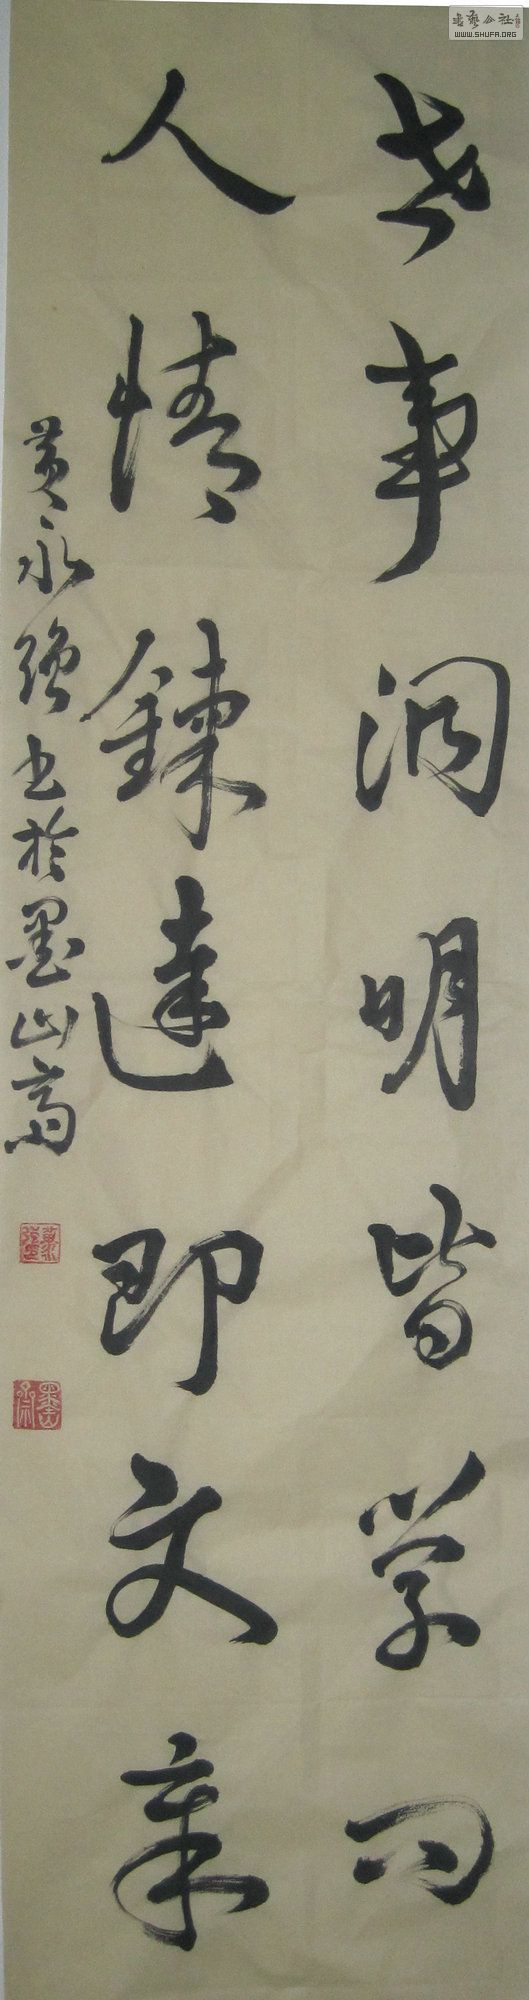 世事洞明皆学问
人情鍊达即文章
黄永强书于墨山斋
書艺公社
WWW.SHUFA.ORG